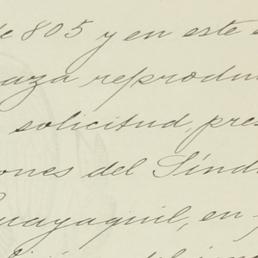 de 805 y en este
raza reprodu
solicitud, pres
ones del Síndi
Guayaquil, en